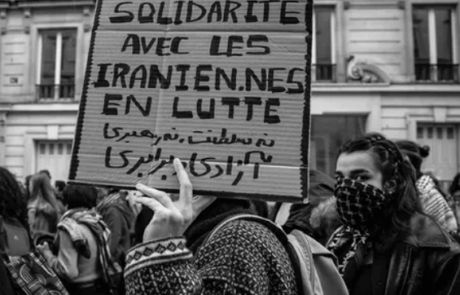 SOLIDARITÉ
AVEC LES
IRANIEN.NES
EN LUTTE
نه سلطنت، نه رهبری
آزادی برابری